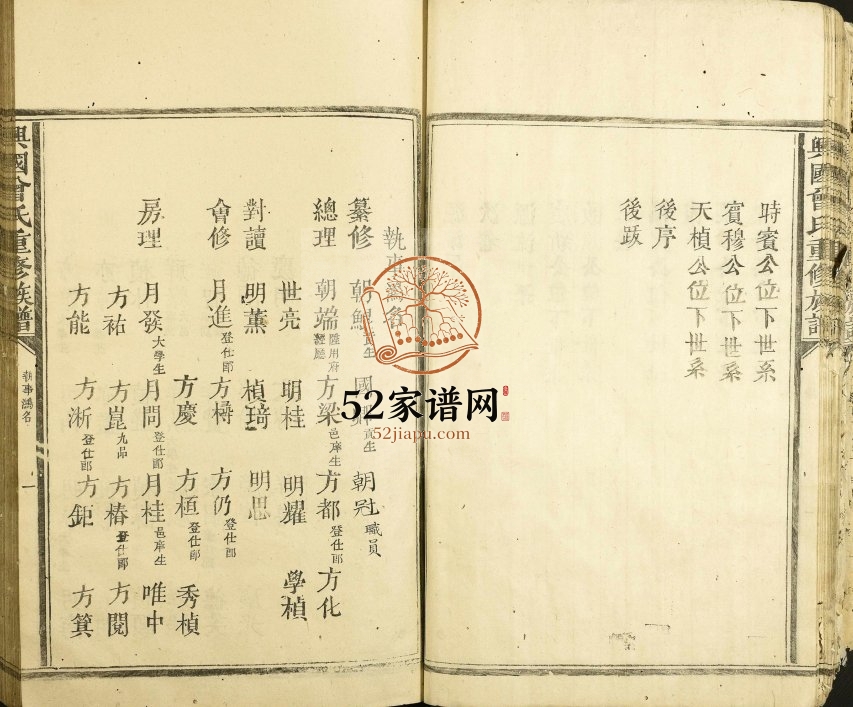 興國曾氏重修族譜
時賓公位下世系
賓穆公位下世系
天楨公位下世系
後序
後跋
執事鴻名
纂修 朝 貢生 國 貢生 朝冠 職員
總理 朝端 方梁 邑庠生 方都 登仕郎 方化
世亮 明桂 明耀 學楨
對讀 明薰 楨琦 明思
會修 月進 登仕郎 方樽 方仍 登仕郎
方慶 方桓 登仕郎 秀楨
房理 月發 大學生 月問 登仕郎 月桂 邑庠生 唯中
方祐 方崑 九品 方椿 登仕郎 方閱
方能 方淅 登仕郎 方鉅 方箕
興國曾氏重修族譜
執事鴻名
一
52家谱网
52jiapu.com